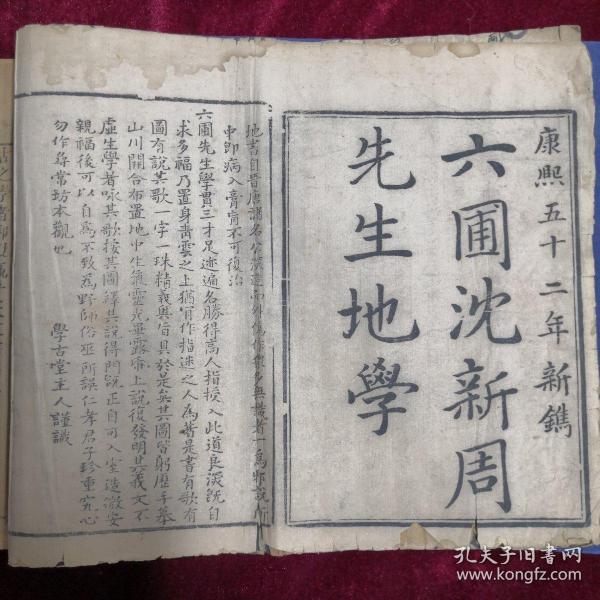 康熙五十二年新鐫
六圃沈新周
先生地學
地書自晉唐諸名公
而外偽作最多無識者一為邪說所
中即病入膏肓不可復治
六圃先生學貫三才足迹遍名勝得高人指授入此道良深既自
求多福乃置身青雲之上猶冐作指迷之人為著是書有歌有
圖有說其歌一字一珠精義奧旨具於是矣其圖皆躬歷手摹
山川開合布置地中生氣靈光畢露帋上說復發明其義文不
虛生學者味其歌按其圖繹其說得門既正自可入室造微安
親福後可以自為不致為野師俗巫所誤仁孝君子珍重究心
勿作尋常坊本觀也
學古堂主人謹識
孔夫子旧书网
www.kongfz.com